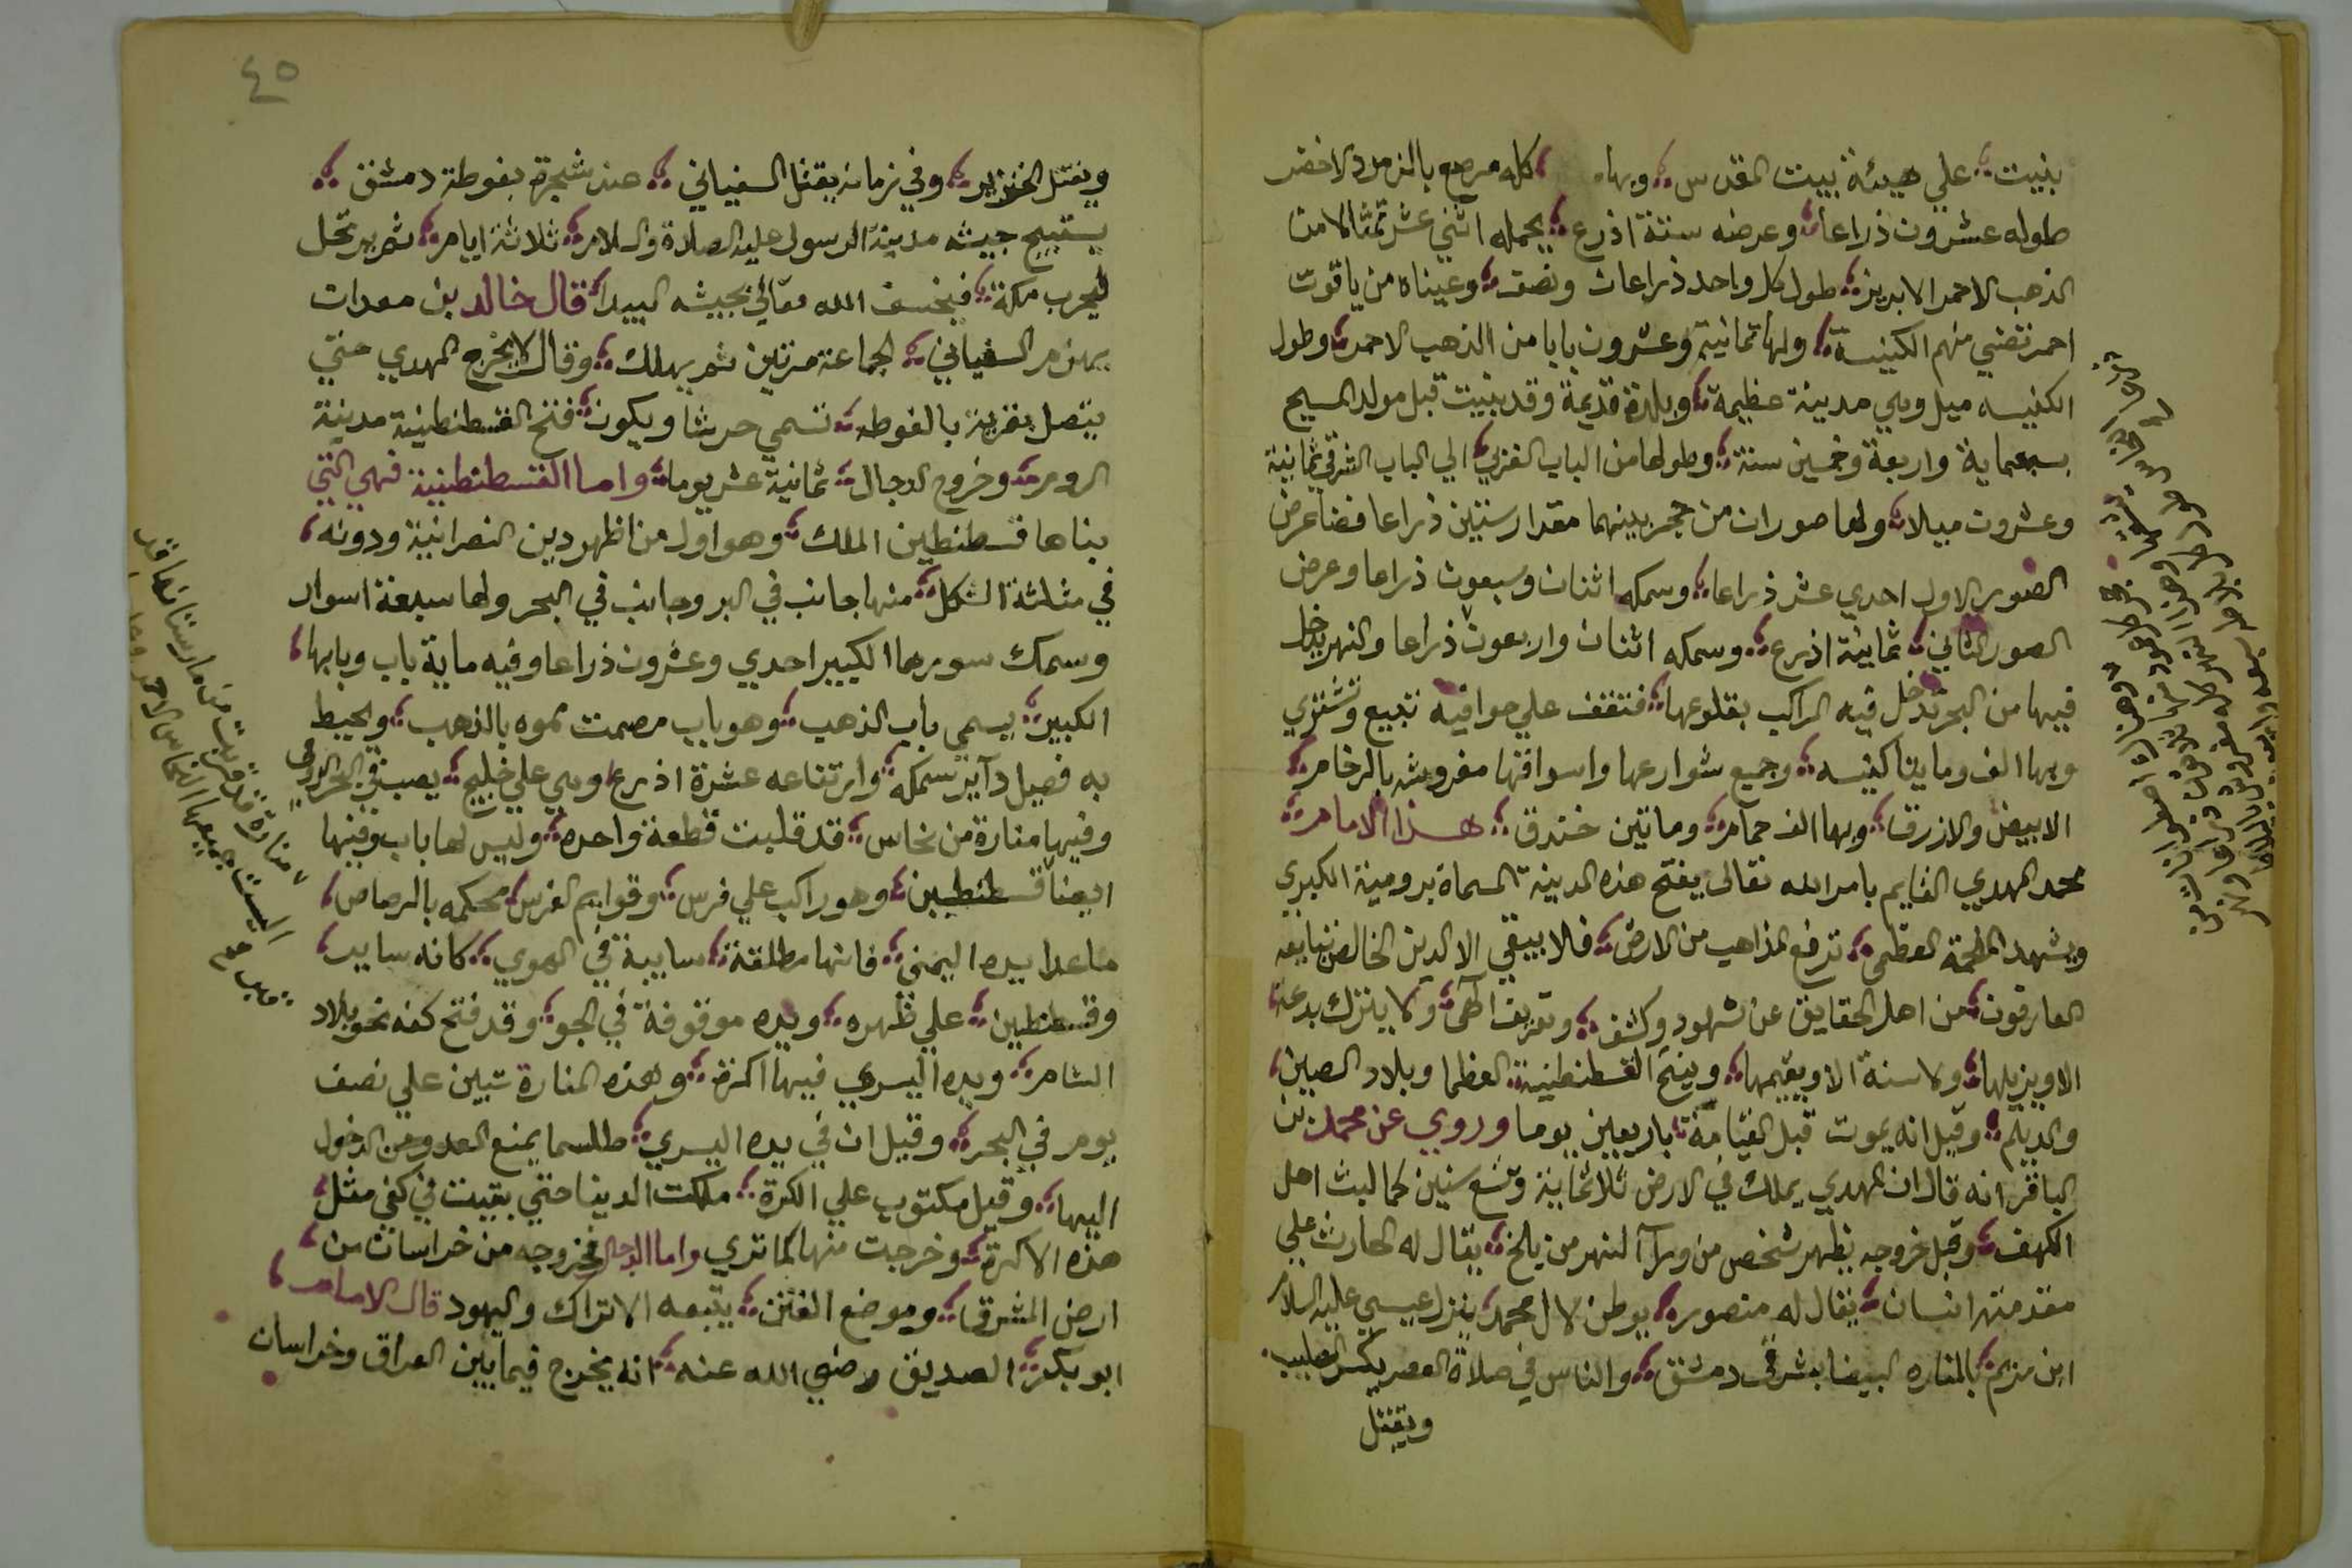 بنيت على هيئة بيت المقدس وبها كله مرصع بالزمرد الاخضر
طوله عشرون ذراعا وعرضه ستة اذرع يحمله اثني عشر تمثالا من
الذهب الاحمر الابريز طول كل واحد ذراعان ونصف وعيناه من ياقوت
احمر تضي منهم الكنيسة ولها ثمانية وعشرون بابا من الذهب الاحمر وطول
الكنيسه ميل وهي مدينة عظيمة وبلدة قديمة وقد بنيت قبل مولد المسيح
بسبعماية واربعة وخمسين سنة وطولها من الباب الغربي الي الباب الشرقي ثمانية
وعشرون ميلا ولها صوران من حجر بينهما مقدار ستين ذراعا فضا عرض
الصور الاول احدي عشر ذراعا وسمكه اثنان وسبعون ذراعا وعرض
الصور الثاني ثمانية اذرع وسمكه اثنان واربعون ذراعا والنهر يدخل
فيها من البحر تدخل فيه المراكب بقلوعها فتقف علي حوافيه تبيع وتشتري
وبها الف ومايتا كنيسه وجميع شوارعها واسواقها مفروشه بالرخام
الابيض والازرق وبها الف حمام وماتين خندق هذا الامام
محمد المهدي القايم بامر الله تعالى يفتح هذه المدينة المسماة برومية الكبري
ويشهد الملحمة العظمى ترفع المذاهب من الارض فلا يبقي الا الدين الخالص تبايعه
العارفون من اهل الحقايق عن شهود وكشف وتعريف الهي ولا يترك بدعة
الا ويزيلها ولا سنة الا ويقيمها ويفتح القسطنطينية العظما وبلاد الصين
والديلم وقيل انه يموت قبل القيامة باربعين يوما وروي عن محمد بن
الباقر انه قال ان المهدي يملك في الارض ثلاثماية وتسع سنين كما لبث اهل
الكهف وقبل خروجه يظهر شخص من ورآ النهر من بلخ يقال له الحارث علي
مقدمته انسان يقال له منصور يوطن لال محمد ينزل عيسي عليه السلام
ابن مريم بالمناره البيضا بشرقي دمشق والناس في صلاة العصر يكسر الصليب
ويقتل
٤٥
ويقتل الخنزير وفي زمانه يقتل السفياني عند شجرة بغوطة دمشق
يستبيح جيشه مدينة الرسول عليه الصلاة والسلام ثلاثة ايام ثم يرتحل
ليخرب مكة فيخسف الله تعالي بجيشه البيدا قال خالد بن معدان
يهزم السفياني الجماعة مرتين ثم يهلك وقال لا يخرج المهدي حتي
يتصل بقرية بالغوطه تسمي حرستا ويكون فتح القسطنطينية مدينة
الروم وخروج الدجال ثمانية عشر يوما واما القسطنطينية فهي التي
بناها قسطنطين الملك وهو اول من اظهر دين النصرانية ودونه
في مثلثة الشكل منها جانب في البر وجانب في البحر ولها سبعة اسوار
وسمك سورها الكبير احدي وعشرون ذراعا وفيه ماية باب وبابها
الكبير يسمي باب الذهب وهو باب مصمت مموه بالذهب ويحيط
به فصيل سمكه وارتفاعه عشرة اذرع وهي علي خليج يصب في البحر الرومي
وفيها منارة من نحاس قد قلبت قطعة واحده وليس لها باب وفيها
ايضا قسطنطين وهو راكب علي فرس وقوايم الفرس محكمه بالرصاص
ما عدا يده اليمني فانها مطلقة سايبة في الهوي كانه ساير
وقسطنطين علي ظهره ويده موقوفة في الجو وقد فتح كفه نحو بلاد
الشام ويده اليسري فيها اكرة وهذه المنارة تبين علي نصف
يوم في البحر وقيل ان في يده اليسري طلسما يمنع العدو من الدخول
اليها وقيل مكتوب علي الكرة ملكت الدينا حتي بقيت في كفي مثل
هذه الاكرة وخرجت منها كما تري واما الدجال فخروجه من خراسان من
ارض المشرق وموضع الفتن يتبعه الاتراك واليهود قال الامام
ابو بكر الصديق رضي الله عنه انه يخرج فيما بين العراق وخراسان